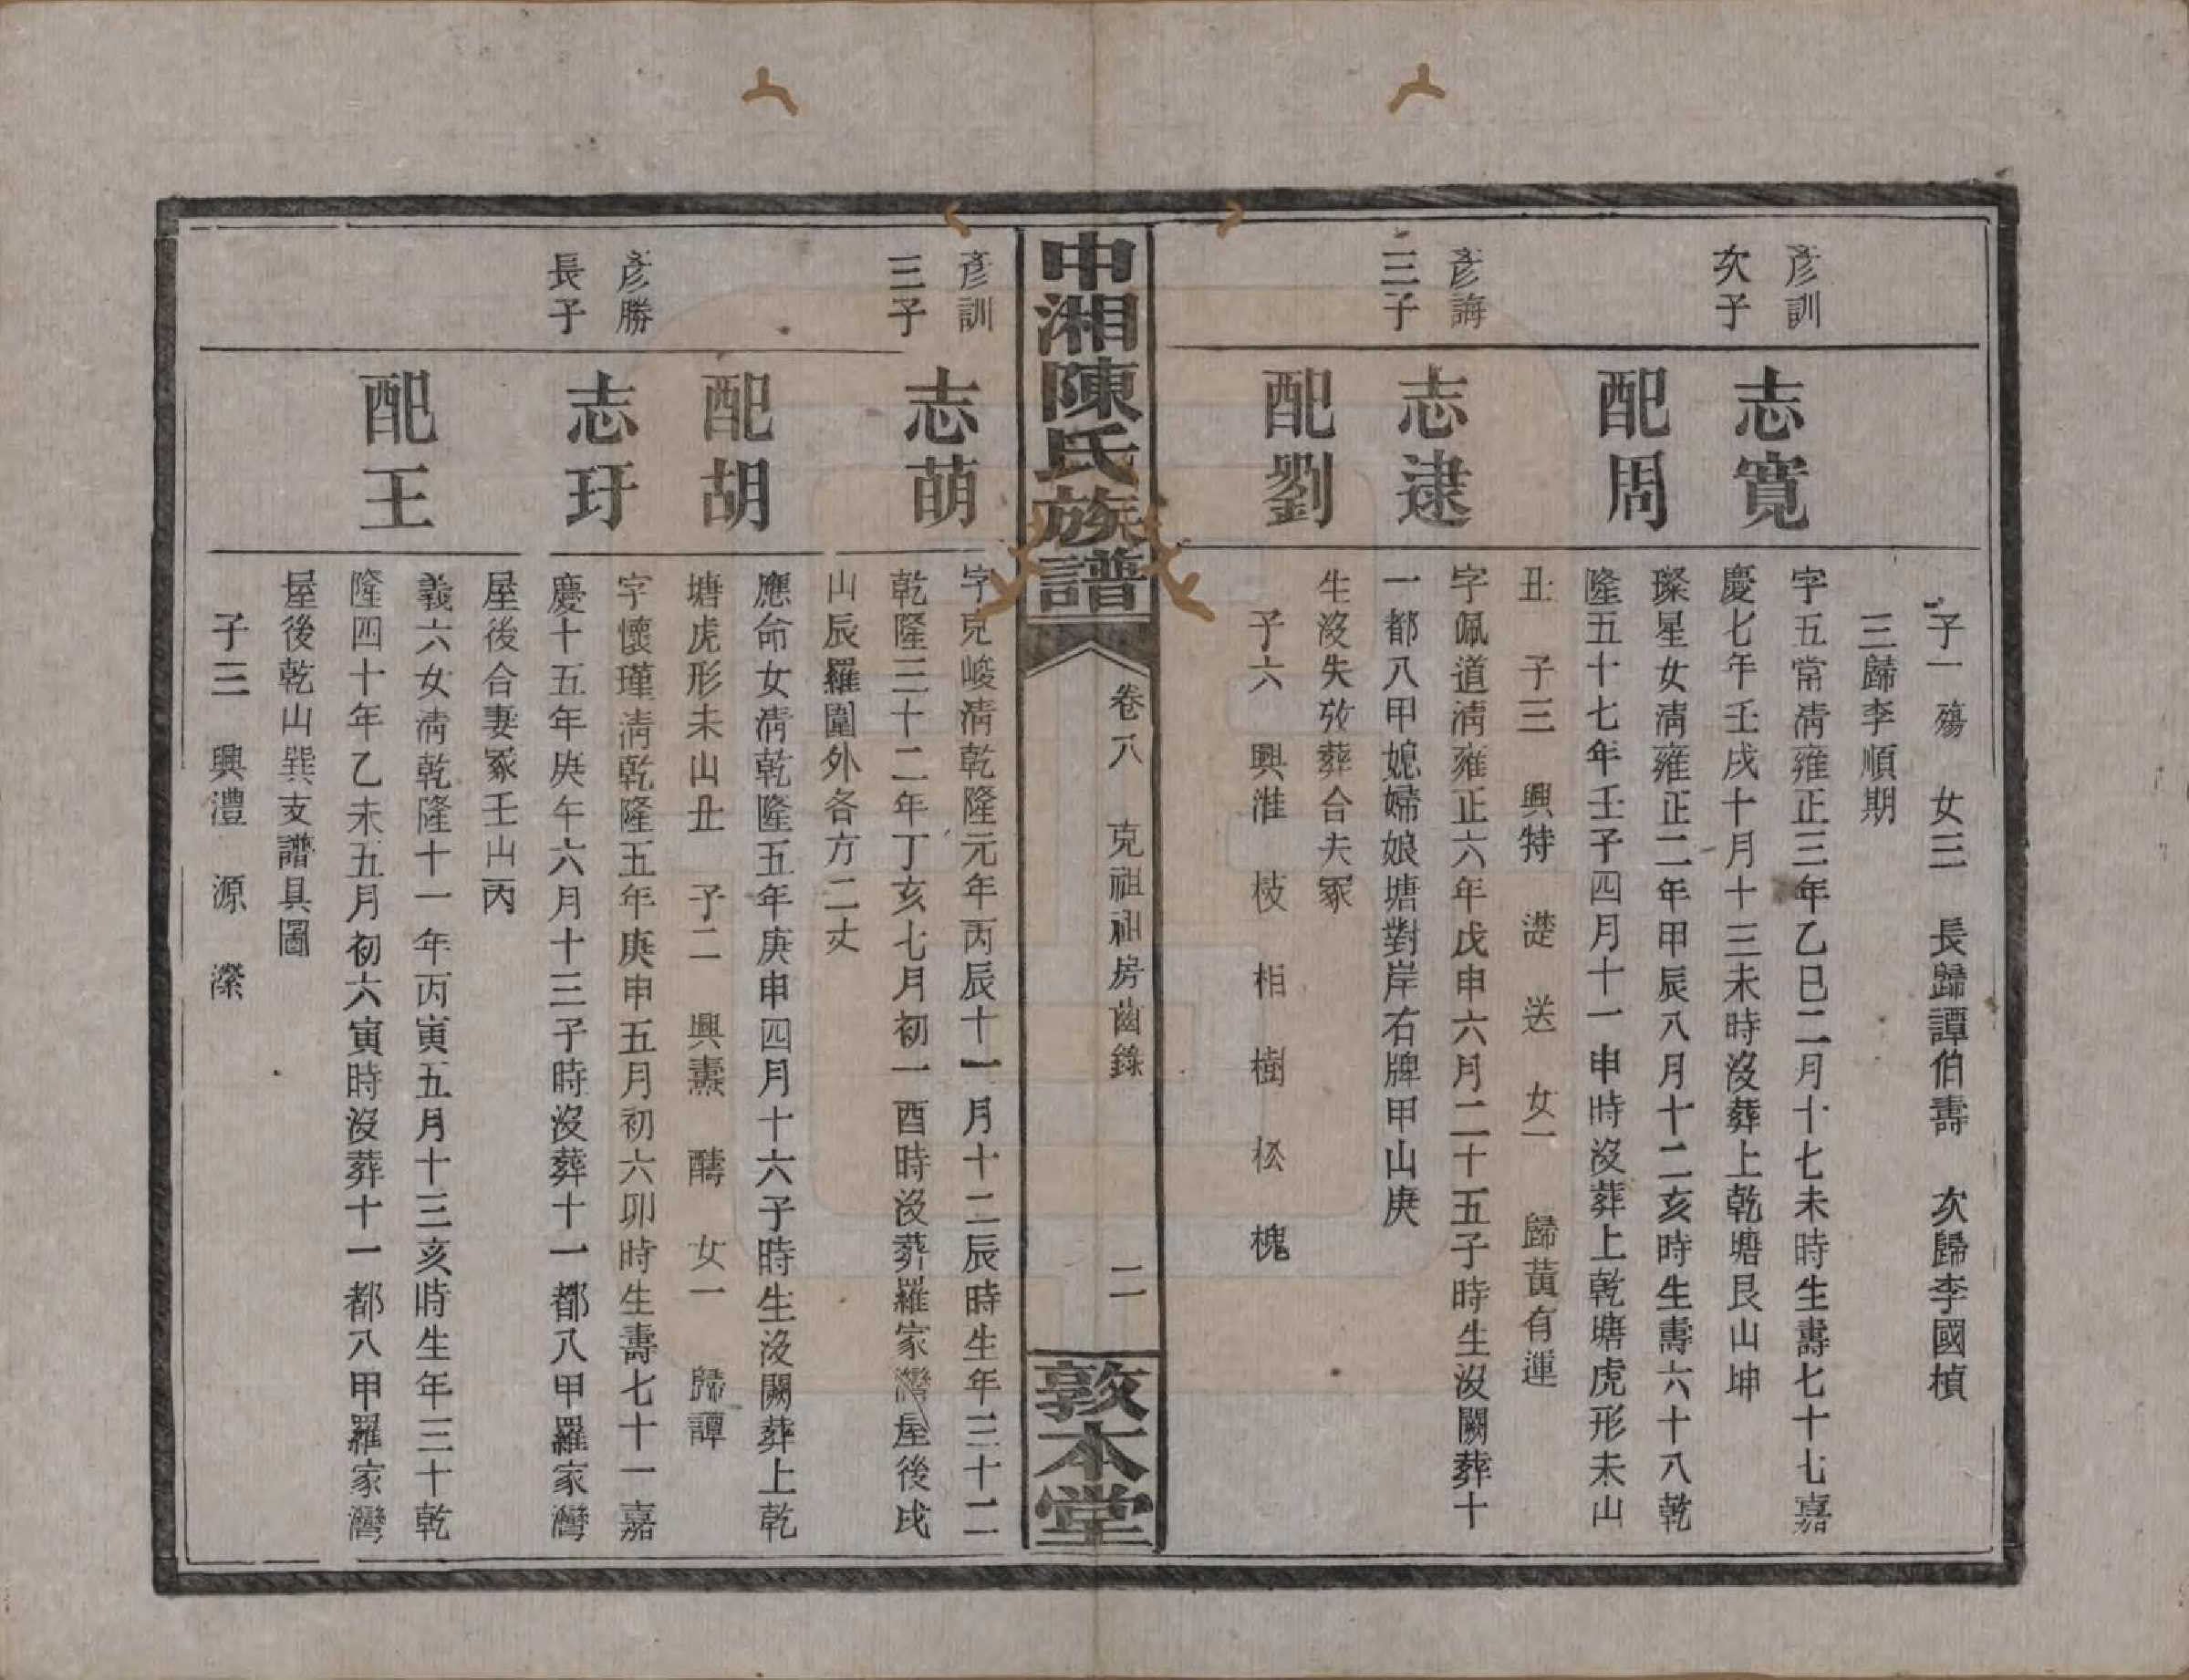 子一殤 女三 長歸譚伯壽 次歸李國楨
三歸李順期
彥訓
次子
志寬
字五常清雍正三年乙巳二月十七未時生壽七十七嘉
慶七年壬戌十月十三未時沒葬上乾塘艮山坤
配周
璨星女清雍正二年甲辰八月十二亥時生壽六十八乾
隆五十七年壬子四月十一申時沒葬上乾塘虎形未山
丑 子三 興特 漟 送 女一 歸黃有運
彥誨
三子
志逮
字佩道清雍正六年戊申六月二十五子時生沒闕葬十
一都八甲媳婦娘塘對岸右牌甲山庚
配劉
生沒失攷葬合夫冢
子六 興淮 枝 柏 樹 松 槐
中湘陳氏族譜
卷八 克祖祖房齒錄 二
敦本堂
彥訓
三子
志萌
字克峻清乾隆元年丙辰十一月十二辰時生年三十二
乾隆三十二年丁亥七月初一酉時沒葬羅家灣屋後戌
山辰羅圍外各方二丈
配胡
應命女清乾隆五年庚申四月十六子時生沒闕葬上乾
塘虎形未山丑 子二 興燾 醻 女一 歸譚
彥勝
長子
志玗
字懷瑾清乾隆五年庚申五月初六卯時生壽七十一嘉
慶十五年庚午六月十三子時沒葬十一都八甲羅家灣
屋後合妻冢壬山丙
配王
義六女清乾隆十一年丙寅五月十三亥時生年三十乾
隆四十年乙未五月初六寅時沒葬十一都八甲羅家灣
屋後乾山巽支譜具圖
子三 興澧 源 濴